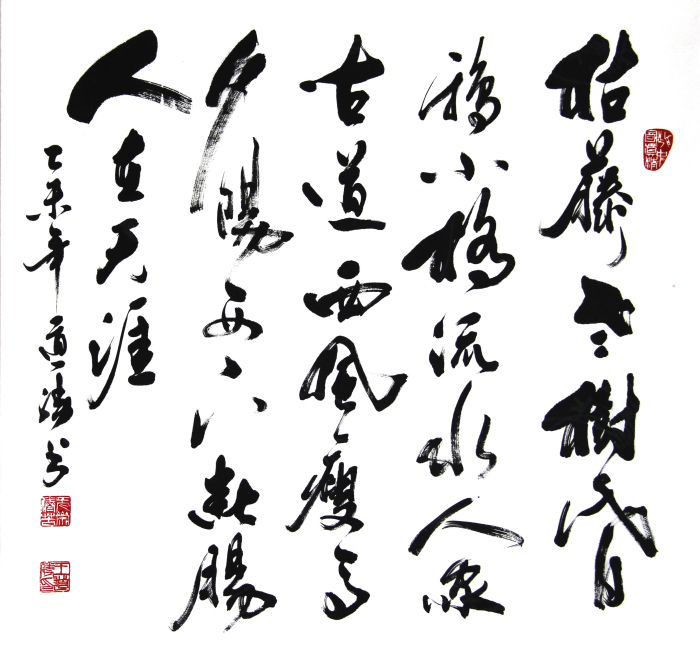 枯藤老樹昏
鴉小橋流水人家
古道西風瘦馬
夕陽西下断腸
人在天涯
乙未年道书